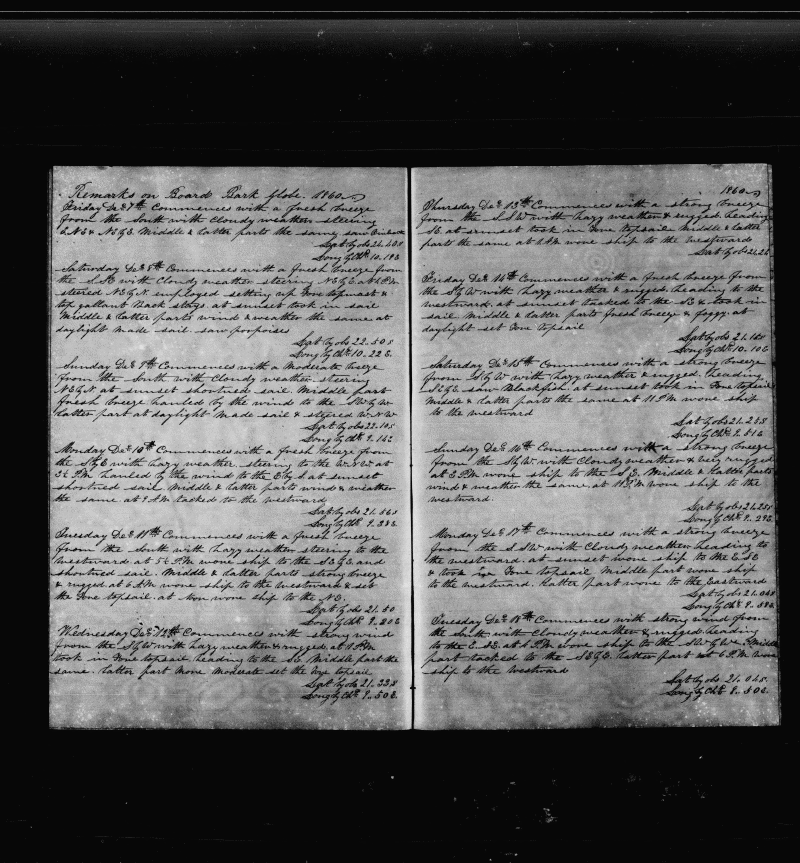 Remarks on Board Bark Globe. 1860
Friday Dec 7th Commences with a fresh breeze
from the South with Cloudy weather steering
E.N.E & N.E.b.E. Middle & latter parts the same. saw
Lat by obs 22.
Long by Chr 10.
Saturday Dec 8th Commences with a fresh breeze from
the S.S.E with Cloudy weather steering N.E.b.E at 1 P.M
steered N.E.b.N employed setting up Fore topmast &
top gallant Back stays at sunset took in sail
Middle & latter parts wind & weather the same at
daylight made sail. saw porpoises
Lat by obs 22.50 S
Long by Chr 10.22 E.
Sunday Dec 9th Commences with a Moderate breeze
from the South with Cloudy weather. steering
N.E.b.N at sunset shortned sail Middle part
fresh breeze hauled by the wind to the S.W.b.W
latter part at daylight made sail & steered W.N.W
Lat by obs 22.10 S
Long by Chr 9.14 E
Monday Dec 10th Commences with a fresh breeze from
the S.b.E with hazy weather. steering to the W.N.W at
3½ P.M. hauled by the wind to the E.b.S at sunset
shortned sail Middle & latter parts wind & weather
the same. at 9 A.M tacked to the westward
Lat by obs 21.
Long by Chr 9.
Tuesday Dec 11th Commences with a fresh breeze
from the South with hazy weather steering to the
westward. at 5½ P.M. wore ship to the S.E.b.E. and
shortned sail. Middle & latter parts strong breeze
& rugged. at 6 A.M. wore ship to the westward & set
the Fore topsail. at Noon wore ship to the N.E.
Lat by obs 21.50
Long by Chr 9.20 E
Wednesday Dec 12th Commences with strong wind
from the S.b.W with hazy weather & rugged. at 1 P.M
took in Fore topsail. heading to the S.E. Middle part the
same. latter part More Moderate set the Fore topsail
Lat by obs 21.22 S
Long by Chr 9.50 E.
1860
Thursday Dec 13th Commences with a strong breeze
from the S.S.W with hazy weather & rugged. heading
S.E. at sunset took in Fore topsail. Middle & latter
parts the same at 1 A.M wore ship to the westward
Lat by obs 21.
Friday Dec 14th Commences with a fresh breeze from
the S.b.W with hazy weather & rugged. heading to the
westward. at sunset tacked to the S.E & took in
sail Middle & latter parts fresh breeze & foggy. at
daylight set Fore topsail
Lat by obs 21.
Long by Chr 10.10 E
Saturday Dec 15th Commences with a strong breeze
from S.b.W with hazy weather & rugged. heading
S.E.b.E. saw Blackfish. at sunset took in Fore topsail
Middle & latter parts the same at 11 P.M wore ship
to the westward
Lat by obs 21.
Long by Chr 9.
Sunday Dec 16th Commences with a strong breeze
from the S.b.W. with Cloudy weather & very rugged
at 3 P.M wore ship to the S.E. Middle & latter parts
wind & weather the same. at 11 P.M wore ship to the
westward.
Lat by obs 21.25 S
Long by Chr 9.29 E
Monday Dec 17th Commences with a strong breeze
from the S.S.W with Cloudy weather heading to
the westward. at sunset wore ship to the E.S.E
& took in Fore topsail Middle part wore ship
to the westward. latter part wore to the Eastward
Lat by obs 21.
Long by Chr 9.
Tuesday Dec 18th Commences with strong wind from
the South with Cloudy weather & rugged. heading
to the E.S.E. at 1 P.M wore ship to the S.W.b.W. Middle
part tacked to the S.E.b.E. latter part at 6 P.M wore
ship to the westward
Lat by obs 21.04 S.
Long by Chr 9.50 E.